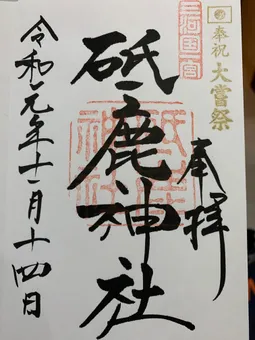 奉祝
大嘗祭
三河国一宮
奉拝
砥鹿神社
砥鹿神社
令和元年十一月十四日